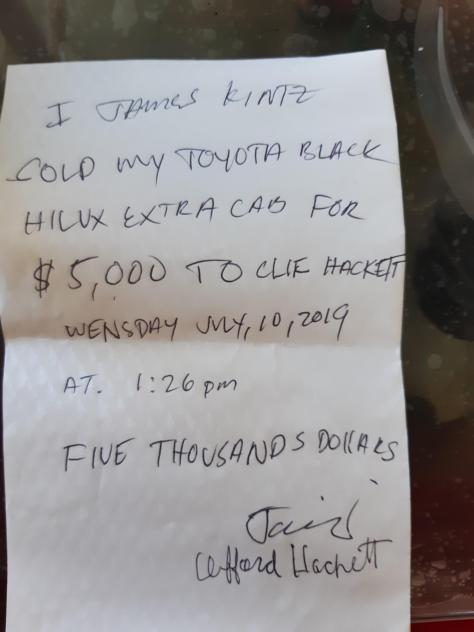 I JAMES KINTZ
COLD MY TOYOTA BLACK
HILUX EXTRA CAB FOR
$5,000 TO CLIF HACKETT
WENSDAY JULY, 10, 2019
AT. 1:26 pm
FIVE THOUSANDS DOllARS
Clifford Hackett